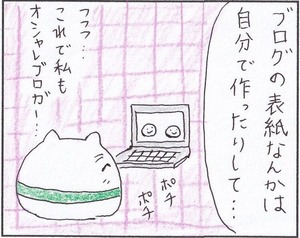 ブログの表紙なんかは
自分で作ったりして…
フフフ…
これで私も
オシャレブロガー…
ポチ
ポチ